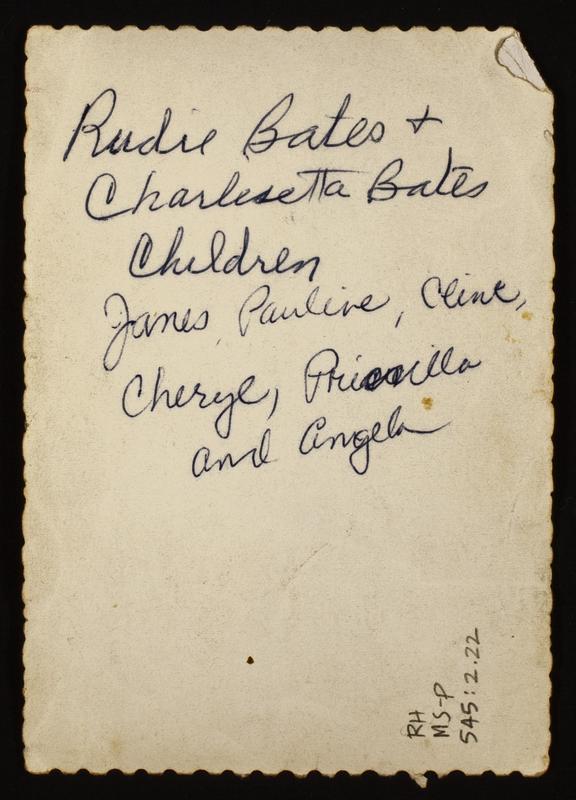 Rudie Bates +
Charlesetta Bates
Children
James, Pauline, Clint,
Cheryl, Priscilla
and Angela
RH
MS-P
545:2.22